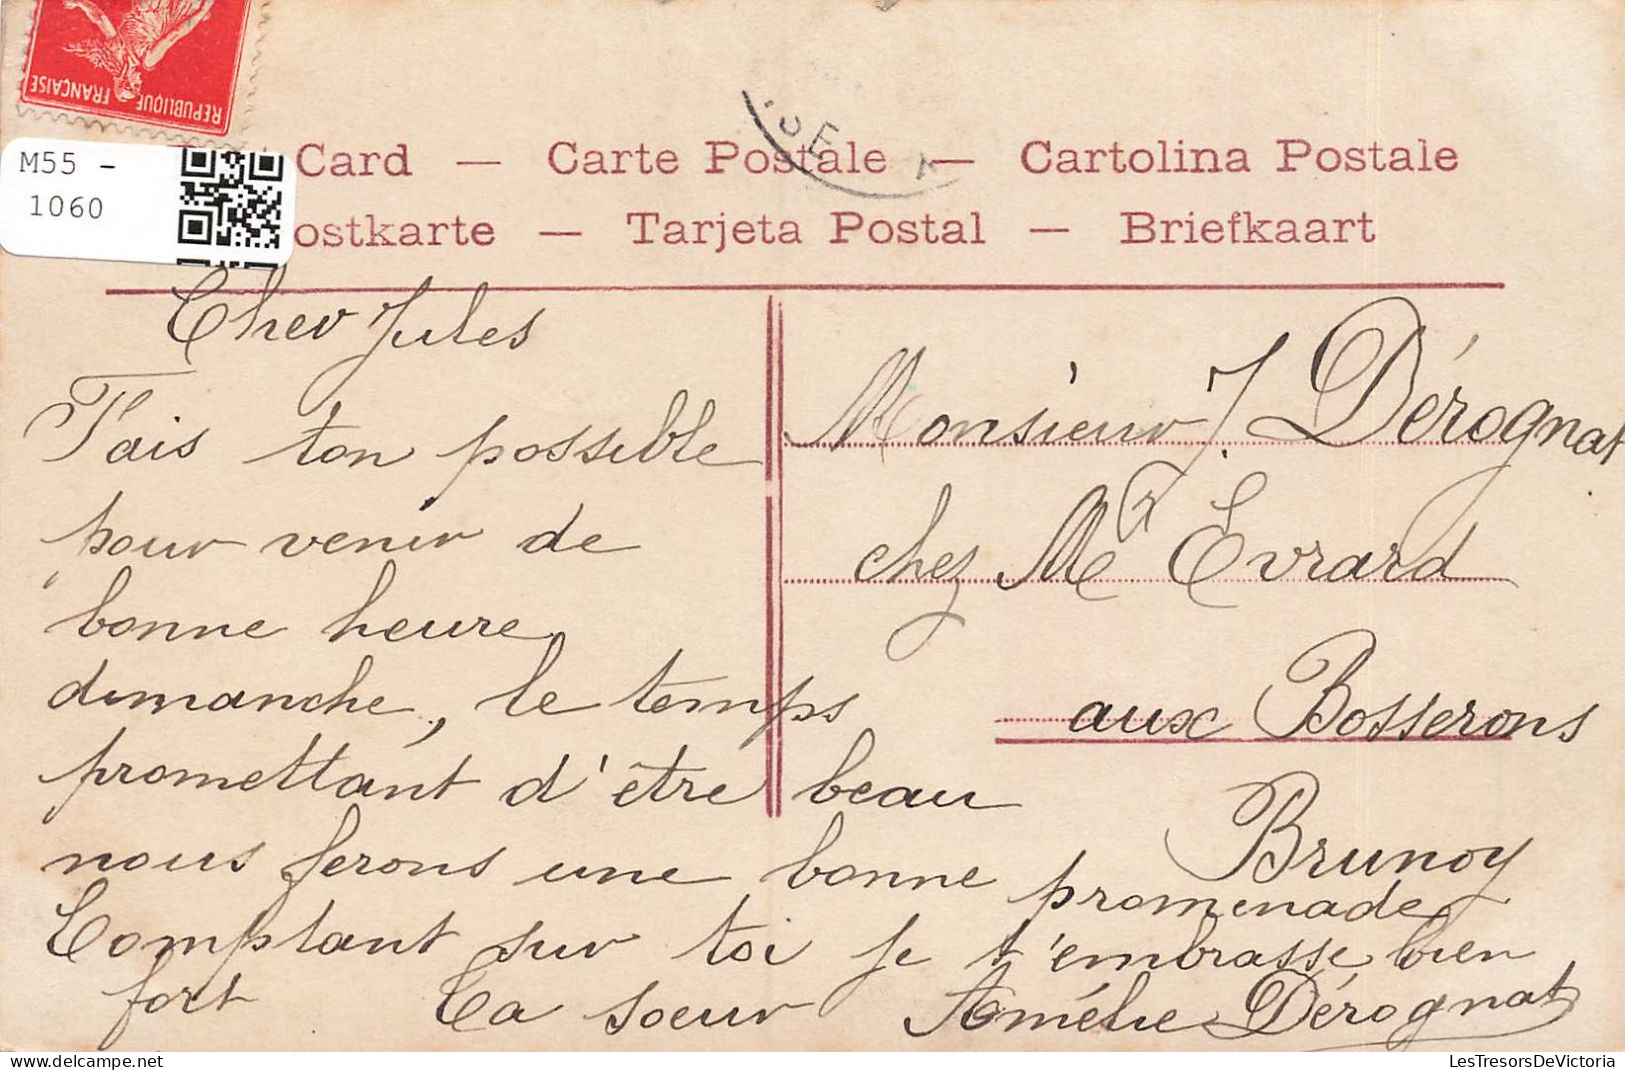 REPUBLIQUE FRANÇAISE
M55 -
1060
Card — Carte Postale — Cartolina Postale
ostkarte — Tarjeta Postal — Briefkaart
Cher Jules
Fais ton possible
pour venir de
bonne heure
dimanche, le temps
promettant d'être beau
nous ferons une bonne promenade
Comptant sur toi je t'embrasse bien
fort Ta soeur Amélie Dérognat
Monsieur J. Dérognat
chez Mr Evrard
aux Bosserons
Brunoy
LesTresorsDeVictoria